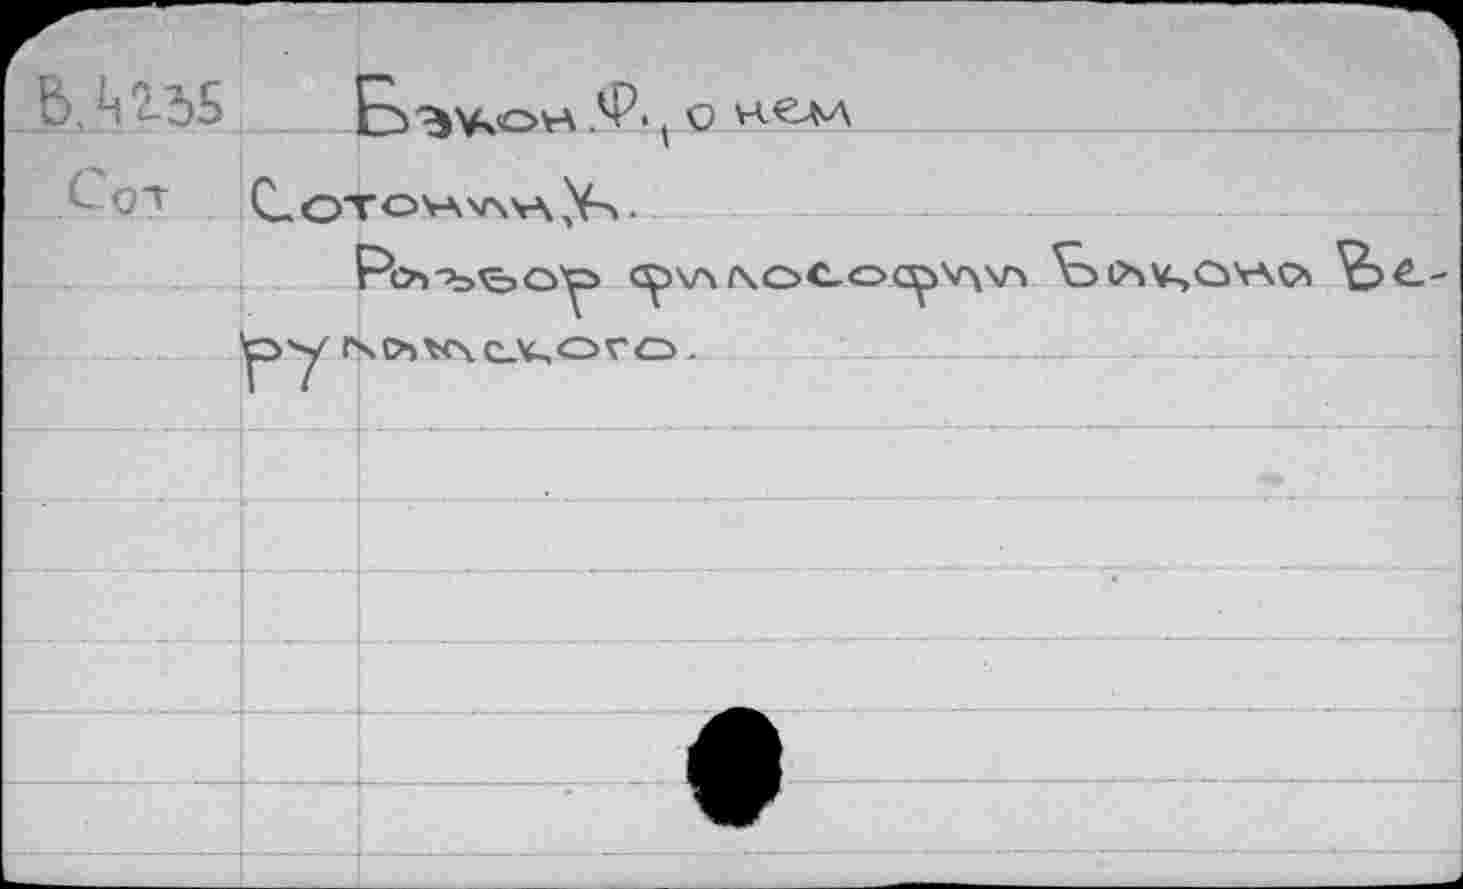 В.4235 Бэкон.Ф., о нем
Сот Сотонин,К.
Разбор философии Бакона Ве-
руламского.